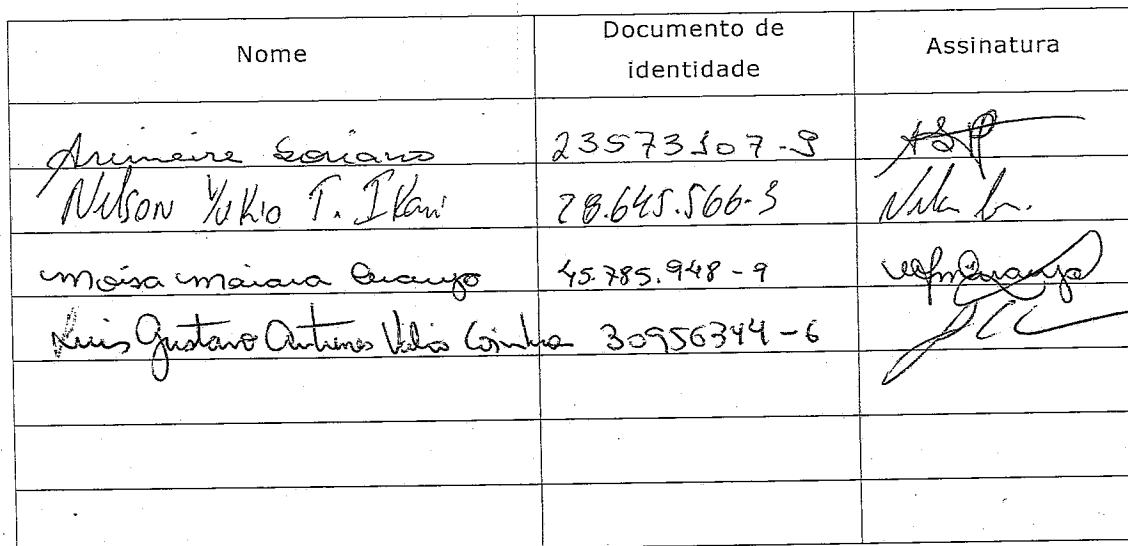 Nome Documento de identidade Assinatura
Arimeire Soriano 23573107-9
Nilson Yukio T. Ikari 28.645.566-3
Moisa Maiara Araujo 45.785.948-9
Luis Gustavo Antunes 30956344-6